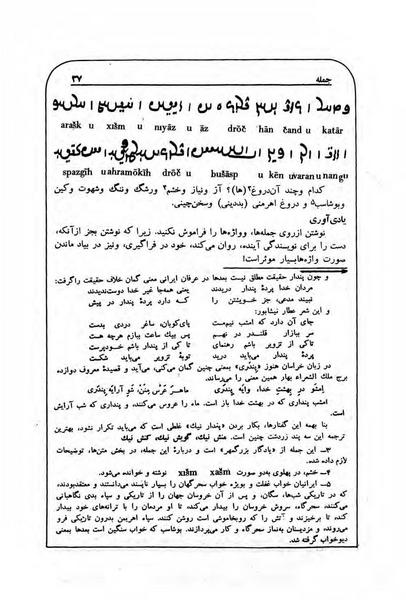 جمله
۳۷
arašk u xišm u nıyāz u āz drōč hān čand u katār
spazgīh uahramōkīh drōč u būšāsp u kēn uvaran u nangu
کدام و چند آن‌دروغ؟(ها)؟ آز ونیاز وخشم؟ ورشگ وننگ وشهوت وکین
وبوشاسب۵ و دروغ اهرمنی (بددینی) وسخن‌چینی.
یادآوری
نوشتن ازروی جمله‌ها، وواژه‌ها را فراموش نکنید. زیرا که نوشتن بجز ازآنکه،
دست را برای نویسندگی آینده، روان می‌کند، خود در فراگیری، ونیز در بیاد ماندن
صورت واژه‌هابسیار موثراست!
و چون پندار حقیقت مطلق نیست بعدها در عرفان ایرانی معنی گمان خلاف حقیقت راگرفت:
مردان خدا پردهٔ پندار دریدند
یعنی همه‌جا غیر خدا دوست‌ندیدند
نبیند مدعی، جز خویشتن را
که دارد پردهٔ پندار در پیش
و این شعر عطار نیشابور:
جای آن دارد که امشب نیم‌مست
پای‌کوبان، ساغر دردی بدست
سر ببازار قلندر در نهم
پس بیک ساعت ببازم هرچه هست
تاکی از تزویر باشم رهنمای
تا کی از پندار باشم خودپرست
پردهٔ پندار می‌باید درید
توبهٔ تزویر می‌باید شکست
در زبان خراسان هنوز «پندری» بمعنی چنین گمان می‌کنی، می‌آید و قصیدهٔ معروف دوازده
برج ملك الشعراء بهار همین معنی را می‌رساند.
امشب پنداری که در بهشت خدا باز است. ماه را عروس می‌کنند، و پنداری که شب آرایش
است.
بنا بهمه این گفتارها، بکار بردن «پندار نیك» غلطی است که می‌باید تکرار نشود، بهترین
ترجمه این سه پند زردشت چنین است. منش نیك، گویش نیك، کنش نیك
۳ـ این جمله از «یادگار بزرگمهر» است، و دربارهٔ این جمله، در بخش متن‌ها، توضیحات
لازم داده شده.
۴ـ خشم، در پهلوی به‌دو صورت xašm xišm نوشته و خوانده می‌شود.
۵ـ ایرانیان خواب غفلت و بویژه خواب سحرگهان را بسیار ناپسند می‌دانستند و معتقدبودند،
که در تاریکی شب‌ها، سگان، و پس از آن خروسان جهان را از تاریکی و سپاه بدی نگاهبانی
می‌کنند، سحرگاه، سروش خروسان را بیدار می‌کند، تا او مردمان را با ترانه‌های خود بیدار
کند، تا برخیزند و آتش را که روبخاموشی است روشن کنند. سپاه اهریمن بدرون تاریکی فرو
می‌روند، و مزدیسنان به‌نماز سحرگاه و کار می‌پردازند. بوشاسب که خواب سنگین است بعدها بمعنی
دیوخواب گرفته شد.